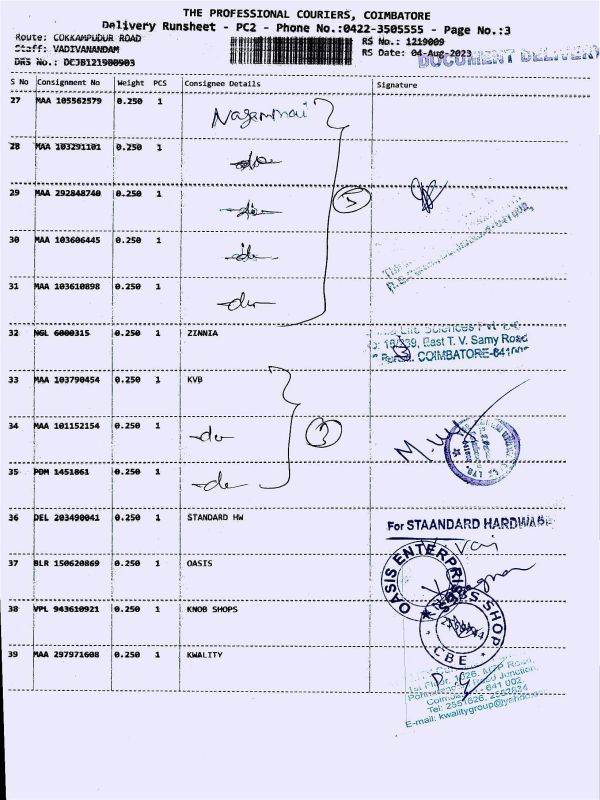 THE PROFESSIONAL COURIERS, COIMBATORE
Delivery Runsheet - PC2 - Phone No.:0422-3505555 - Page No.:3
Route: COKKAMPUDUR ROAD
RS No.: 1219009
Staff: VADIVANANDAM
RS Date: 04-Aug-2023
DOCUMENT DELIVERY
DRS No.: DCJB121900903
S No Consignment No Weight PCS Consignee Details Signature
27 MAA 105562579 0.250 1 Nagammai
28 MAA 103291101 0.250 1 -do-
29 MAA 292848740 0.250 1 -do-
5
30 MAA 103606445 0.250 1 -do-
31 MAA 103610898 0.250 1 -do-
32 NGL 6000315 0.250 1 ZINNIA
Life Sciences Pvt Ltd
16/239, East T. V. Samy Road
COIMBATORE-641
33 MAA 103790454 0.250 1 KVB
34 MAA 101152154 0.250 1 -do-
3
35 PDM 1451861 0.250 1 -do-
36 DEL 203490041 0.250 1 STANDARD HW
For STAANDARD HARDWARE
37 BLR 150620869 0.250 1 OASIS
OASIS ENTERPRISES
38 VPL 943610921 0.250 1 KNOB SHOPS
KNOBS SHOP
CBE
39 MAA 297971608 0.250 1 KWALITY
1st Floor, 1026, MTP Road,
Junction,
Coimbatore - 641 002.
Tel: 2551526, 2552524
E-mail: kwalitygroup@yahoo